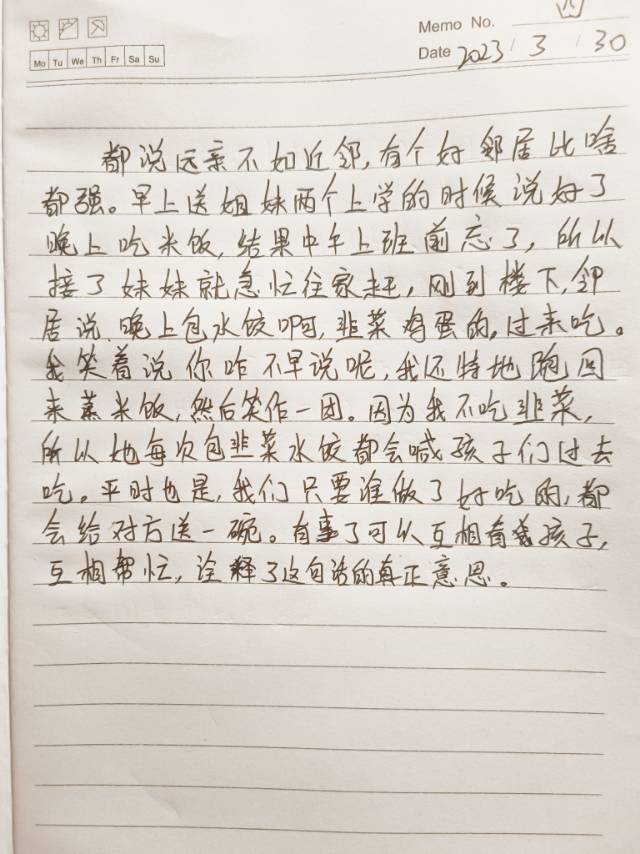 四
Memo No.
Mo Tu We Th Fr Sa Su
Date 2023 / 3 / 30
都说远亲不如近邻,有个好邻居比啥
都强。早上送姐妹两个上学的时候说好了
晚上吃米饭,结果中午上班前忘了,所以
接了妹妹就急忙往家赶,刚到楼下,邻
居说晚上包水饺啊,韭菜鸡蛋的,过来吃。
我笑着说你咋不早说呢,我还特地跑回
来蒸米饭,然后笑作一团。因为我不吃韭菜,
所以她每次包韭菜水饺都会喊孩子们过去
吃。平时也是,我们只要谁做了好吃的,都
会给对方送一碗。有事了可以互相看孩子,
互相帮忙,诠释了这句话的真正意思。